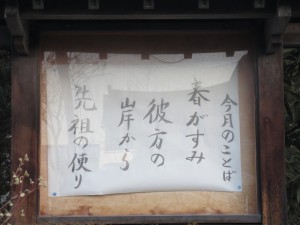 今月のことば
春がすみ
彼方の
山岸から
先祖の便り